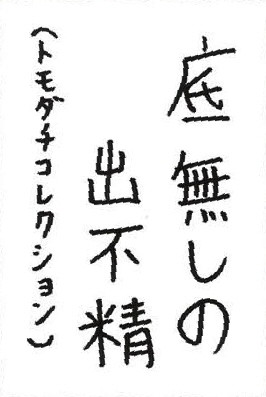 底無しの
出不精
(トモダチコレクション)